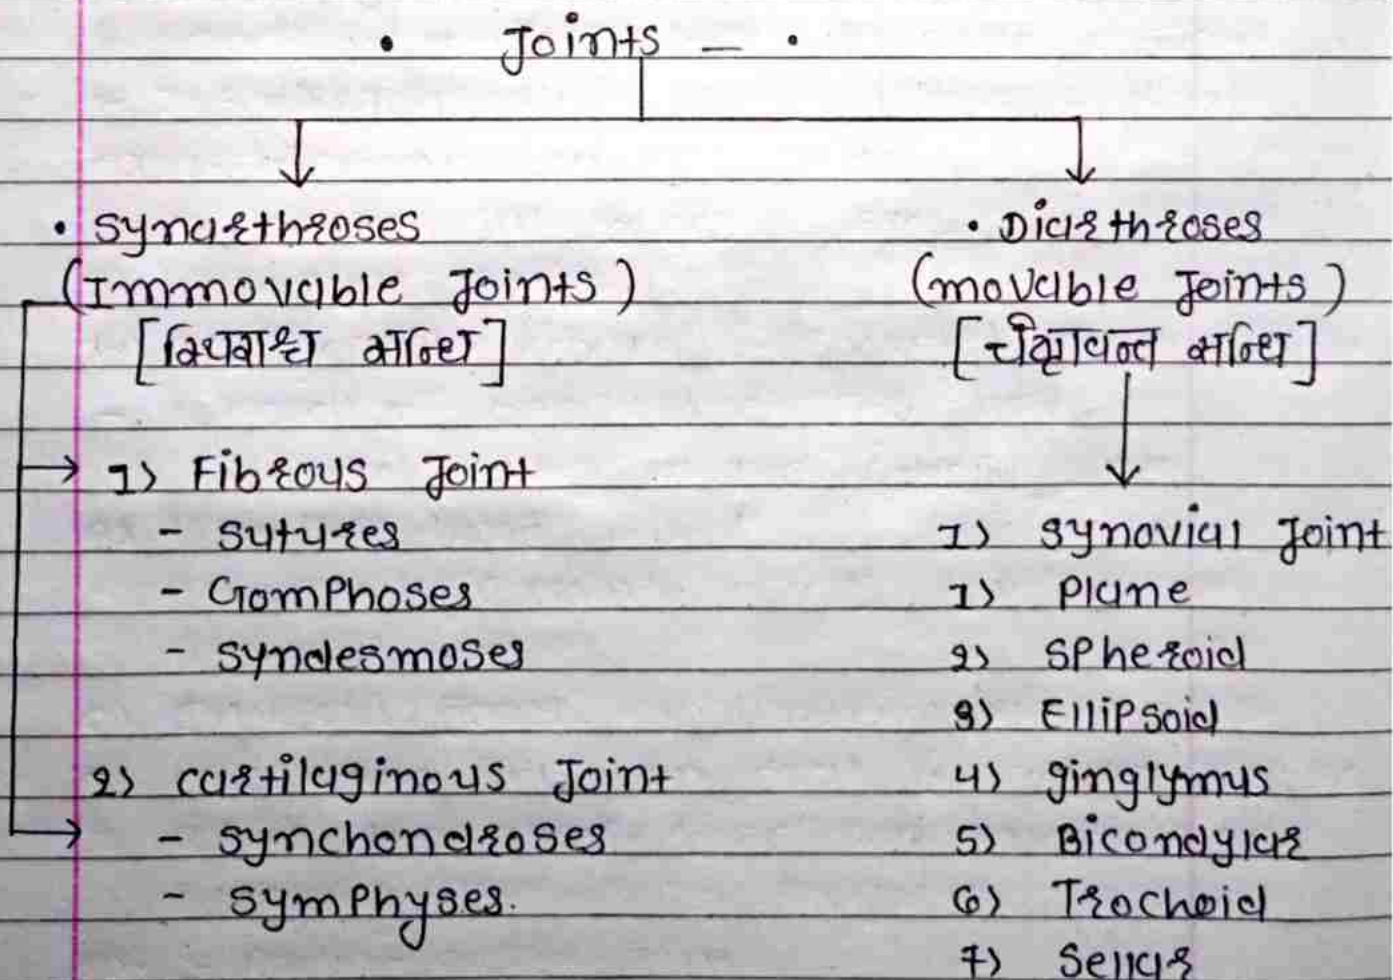 • Joints – •
• Synarthroses
(Immovable Joints)
[स्थिराश्चा सन्धि]
→ 1) Fibrous Joint
- Sutures
- Gomphoses
- Syndesmoses
2) Cartilaginous Joint
→ - Synchondroses
- Symphyses.
• Diarthroses
(movable Joints)
[चेष्टावन्त सन्धि]
1) Synovial Joint
1) Plane
2) Spheroid
3) Ellipsoid
4) ginglymus
5) Bicondylar
6) Trochoid
7) Sellar